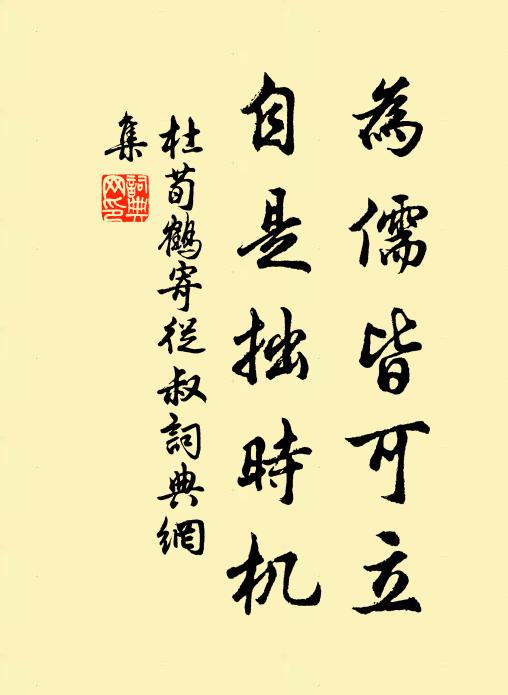 為儒皆可立
自是拙時机
杜荀鶴寄從叔詞典網
集
詞典网印